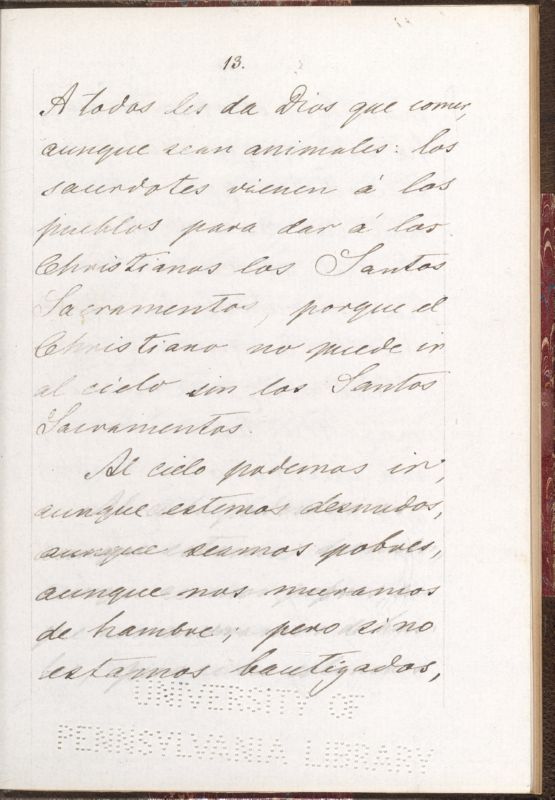 13.
A todos les da Dios que comer,
aunque sean animales: los
sacerdotes vienen á los
pueblos para dar á los
Christianos los Santos
Sacramentos, porque el
Christiano no puede ir
al cielo sin los Santos
Sacramentos.
Al cielo podemos ir,
aunque estemos desnudos,
aunque seamos pobres,
aunque nos muramos
de hambre; pero si no
estamos bautizados,
UNIVERSITY OF
PENNSYLVANIA LIBRARY